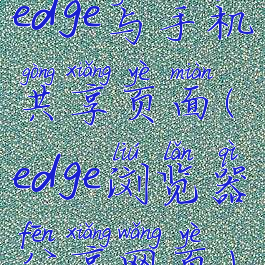 edge与手机
gòng xiǎng yè miàn
共享页面(
liú lǎn qì
edge浏览器
fēn xiǎng wǎng yè
分享网页)